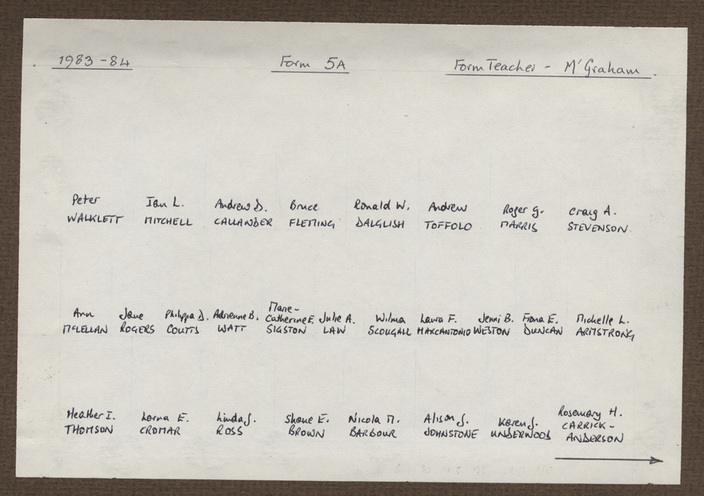 1983-84 Form 5A Form Teacher - Mr Graham
Peter Ian L. Andrew D. Bruce Ronald W. Andrew Roger G. Craig A.
WALKLETT MITCHELL CALLANDER FLEMING DALGLISH TOFFOLO MARRIS STEVENSON
Marie-
Ann Jane Philippa D. Adrienne B. Catherine E. Julie A. Wilma Laura F. Jenni B. Fiona E. Michelle L.
McLELLAN ROGERS COUTTS WATT SIGSTON LAW SCOUGALL MARCANTONIO WESTON DUNCAN ARMSTRONG
Heather I. Lorna E. Linda J. Shone E. Nicola M. Alison J. Karen J. Rosemary H.
THOMSON CROMAR ROSS BROWN BARBOUR JOHNSTONE UNDERWOOD CARRICK-
ANDERSON